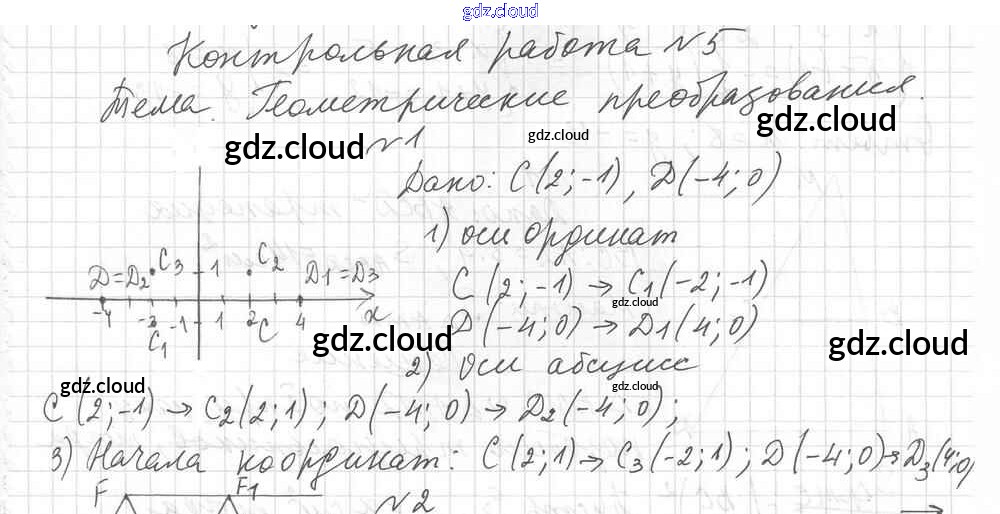 gdz.cloud
Контрольная работа №5
Тема. Геометрические преобразования.
gdz.cloud
gdz.cloud gdz.cloud №1
Дано: C(2;-1), D(-4;0)
1) оси ординат
D=D2 C3 1 C2 D1=D3
C(2;-1) → C1(-2;-1)
gdz.cloud
-4 -2 -1 1 2 4 x
C1 C
D(-4;0) → D1(4;0)
gdz.cloud gdz.cloud
2) Оси абсцисс
gdz.cloud gdz.cloud
C(2;-1) → C2(2;1); D(-4;0) → D2(-4;0);
3) Начала координат: C(2;1) → C3(-2;1); D(-4;0) → D3(4;0)
F F1 №2
gdz.cloud